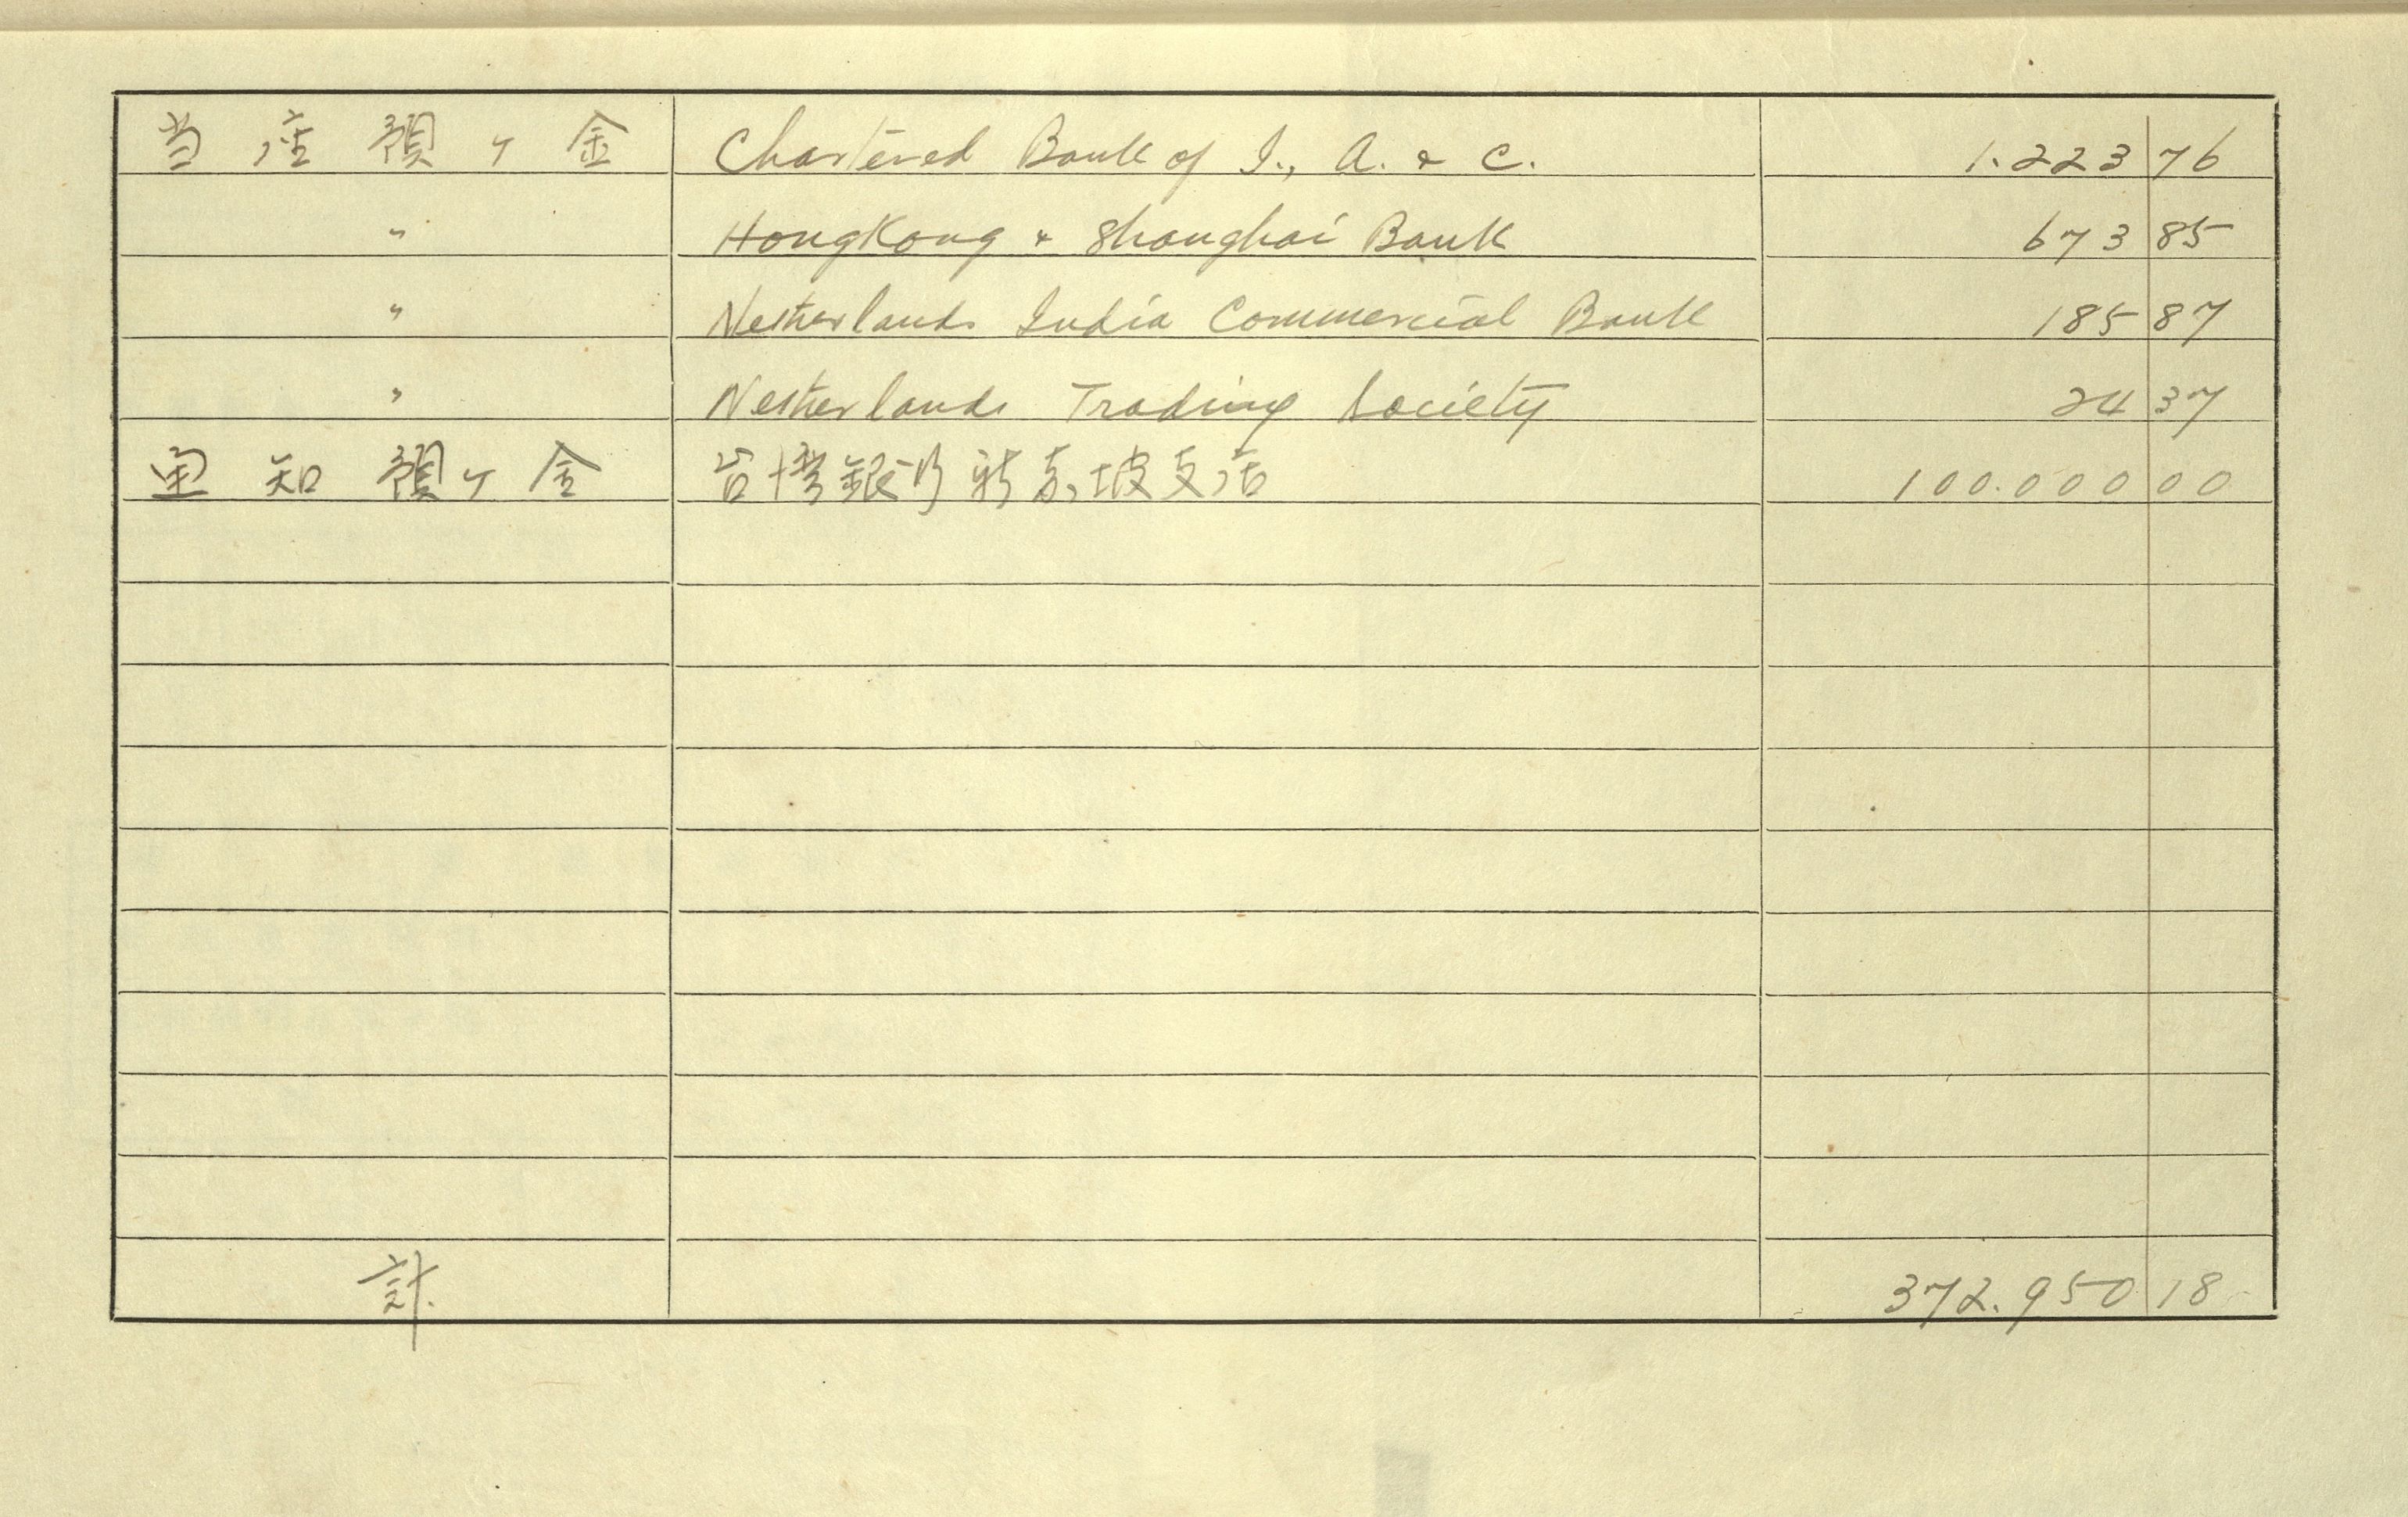 当座預ケ金 Chartered Bank of I., A. & C. 1.223 76
〃 HongKong & Shanghai Bank 673 85
〃 Netherlands India Commercial Bank 185 87
〃 Netherlands Trading Society 24 37
通知預ケ金 台湾銀行新嘉坡支店 100.000 00
計 372.950 18